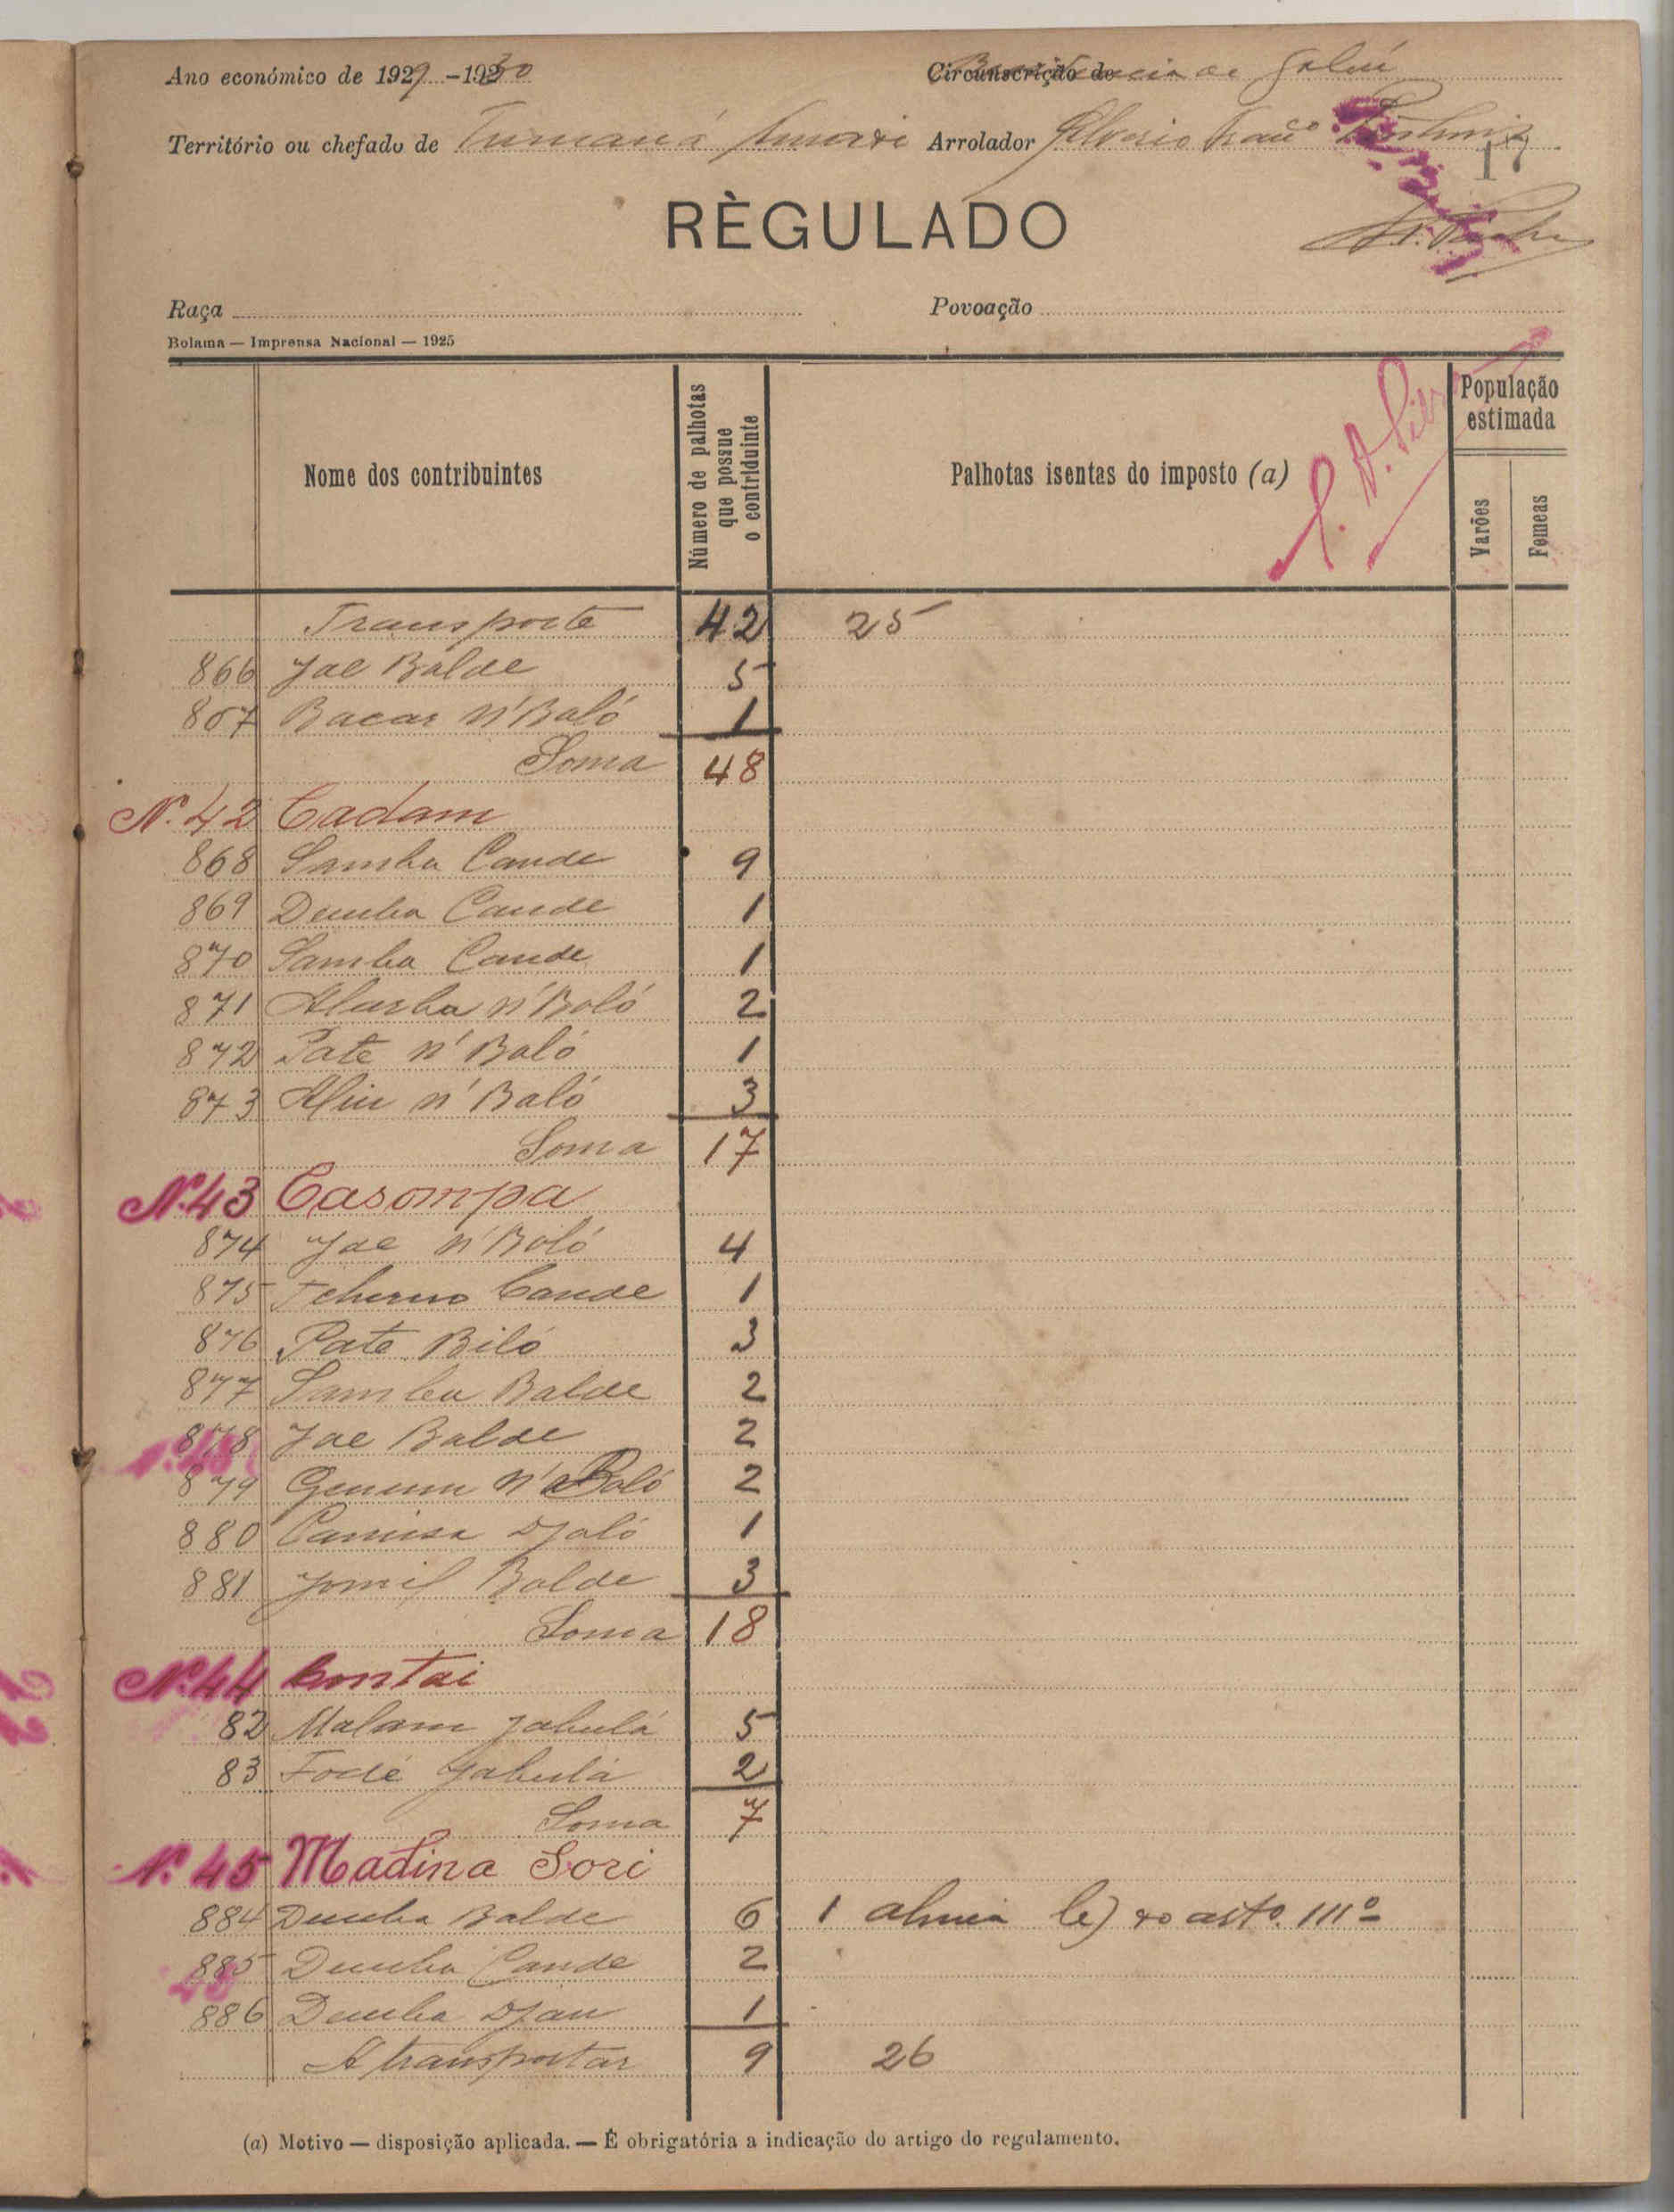 Ano económico de 1929-1930
Circunscrição de Gabú
Território ou chefado de Tumaná Arrolador
17
RÈGULADO
Raça
Povoação
Bolama — Imprensa Nacional — 1925
Nome dos contribuintes
Número de palhotas que possue o contriduinte
Palhotas isentas do imposto (a)
População estimada
Varões
Femeas
Transporte 42 25
866 Jae Balde 5
867 Bacar N'Baló 1
Soma 48
N. 42 Cadam
868 Samba Cande 9
869 Demba Cande 1
870 Samba Cande 1
871 N'Baló 2
872 Pate N'Baló 1
873 Aliu N'Baló 3
Soma 17
N. 43 Casompa
874 Jae N'Baló 4
875 Tcherno Cande 1
876 Pate Biló 3
877 Samba Balde 2
878 Jae Balde 2
879 N'Baló 2
880 Camisa Djaló 1
881 Balde 3
Soma 18
N. 44 Contai
82 Malam Jabulá 5
83 Fodé Jabulá 2
Soma 7
N. 45 Madina Sori
884 Demba Balde 6 1 b) do artº. 111º
885 Demba Cande 2
886 Demba Djau 1
A transportar 9 26
(a) Motivo — disposição aplicada. — É obrigatória a indicação do artigo do regulamento.